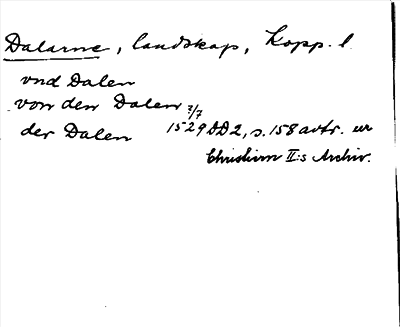 Dalarne, landskap, Kopp. l.
vnd Dalen
von den Dalen
der Dalen 2/7 1529 DD2, s. 158 avtr. ur
Christiern II:s Archiv.